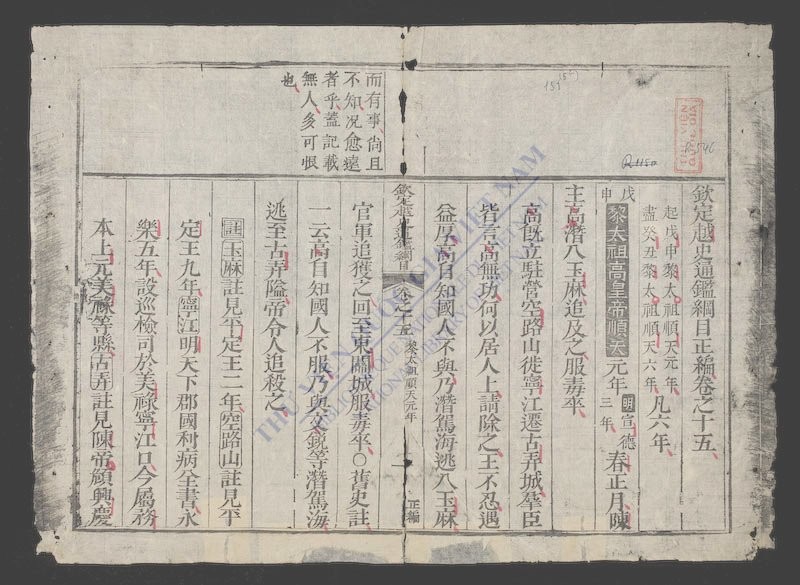 欽定越史通鑑綱目正編卷之十五
起戊申黎太祖順天元年
盡癸丑黎太祖順天六年
凡六年
戊申黎太祖高皇帝順天元年明宣德三年春正月陳
主高潛入玉麻追及之服毒卒
高既立駐營空路山徙寧江遷古弄城羣臣
皆言高無功何以居人上請除之王不忍遇
益厚高自知國人不與乃潛駕海逃入玉麻
欽定越史通鑑綱目 卷之十五 黎太祖順天元年 一 正編
而有事尚且
不知况愈遠
者乎蓋記載
無人多可恨
也
官軍追獲之回至東關城服毒卒○舊史註
一云高自知國人不服乃與文銳等潛駕海
逃至古弄隘帝令人追殺之
註玉麻註見平定王二年空路山註見平
定王九年寧江明天下郡國利病全書永
樂五年設巡檢司於美祿寧江口今屬務
本上元美祿等縣古弄註見陳帝頠興慶
THƯ VIỆN QUỐC GIA
R.1150
THƯ VIỆN QUỐC GIA VIỆT NAM